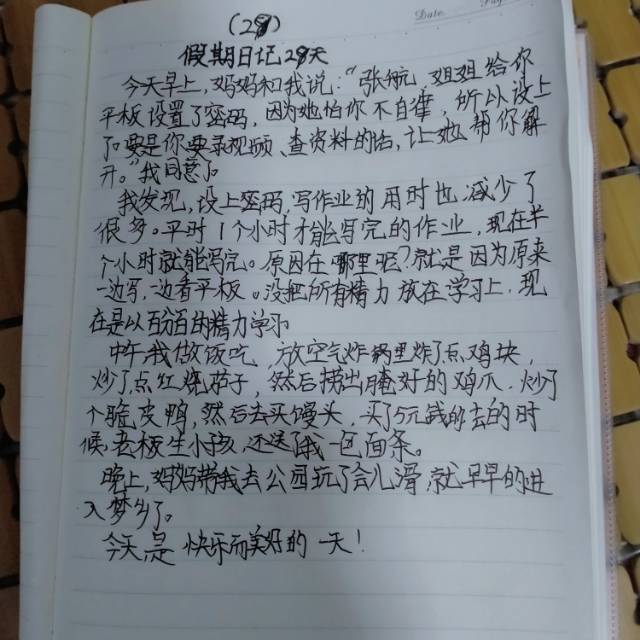 Date
(28)
假期日记28天
今天早上,妈妈和我说:“张航,姐姐给你
平板设置了密码,因为她怕你不自律,所以设上
了要是你要录视频、查资料的话,让她帮你解
开。”我同意了
我发现,设上密码,写作业的用时也减少了
很多。平时1个小时才能写完的作业,现在半
个小时就能写完。原因在哪里呢?就是因为原来
一边写,一边看平板。没把所有精力放在学习上,现
在是以百分百的精力学习
中午我做饭吃,放空气炸锅里炸了点鸡块,
炒了点红烧茄子,然后捞出腌好的鸡爪,炒了
个脆皮鸭,然后去买馒头,买了5元钱的去的时
候,老板生小孩,还送了我一包面条。
晚上,妈妈带我去公园玩了会儿滑,就早早的进
入梦乡了。
今天是快乐而美好的一天!